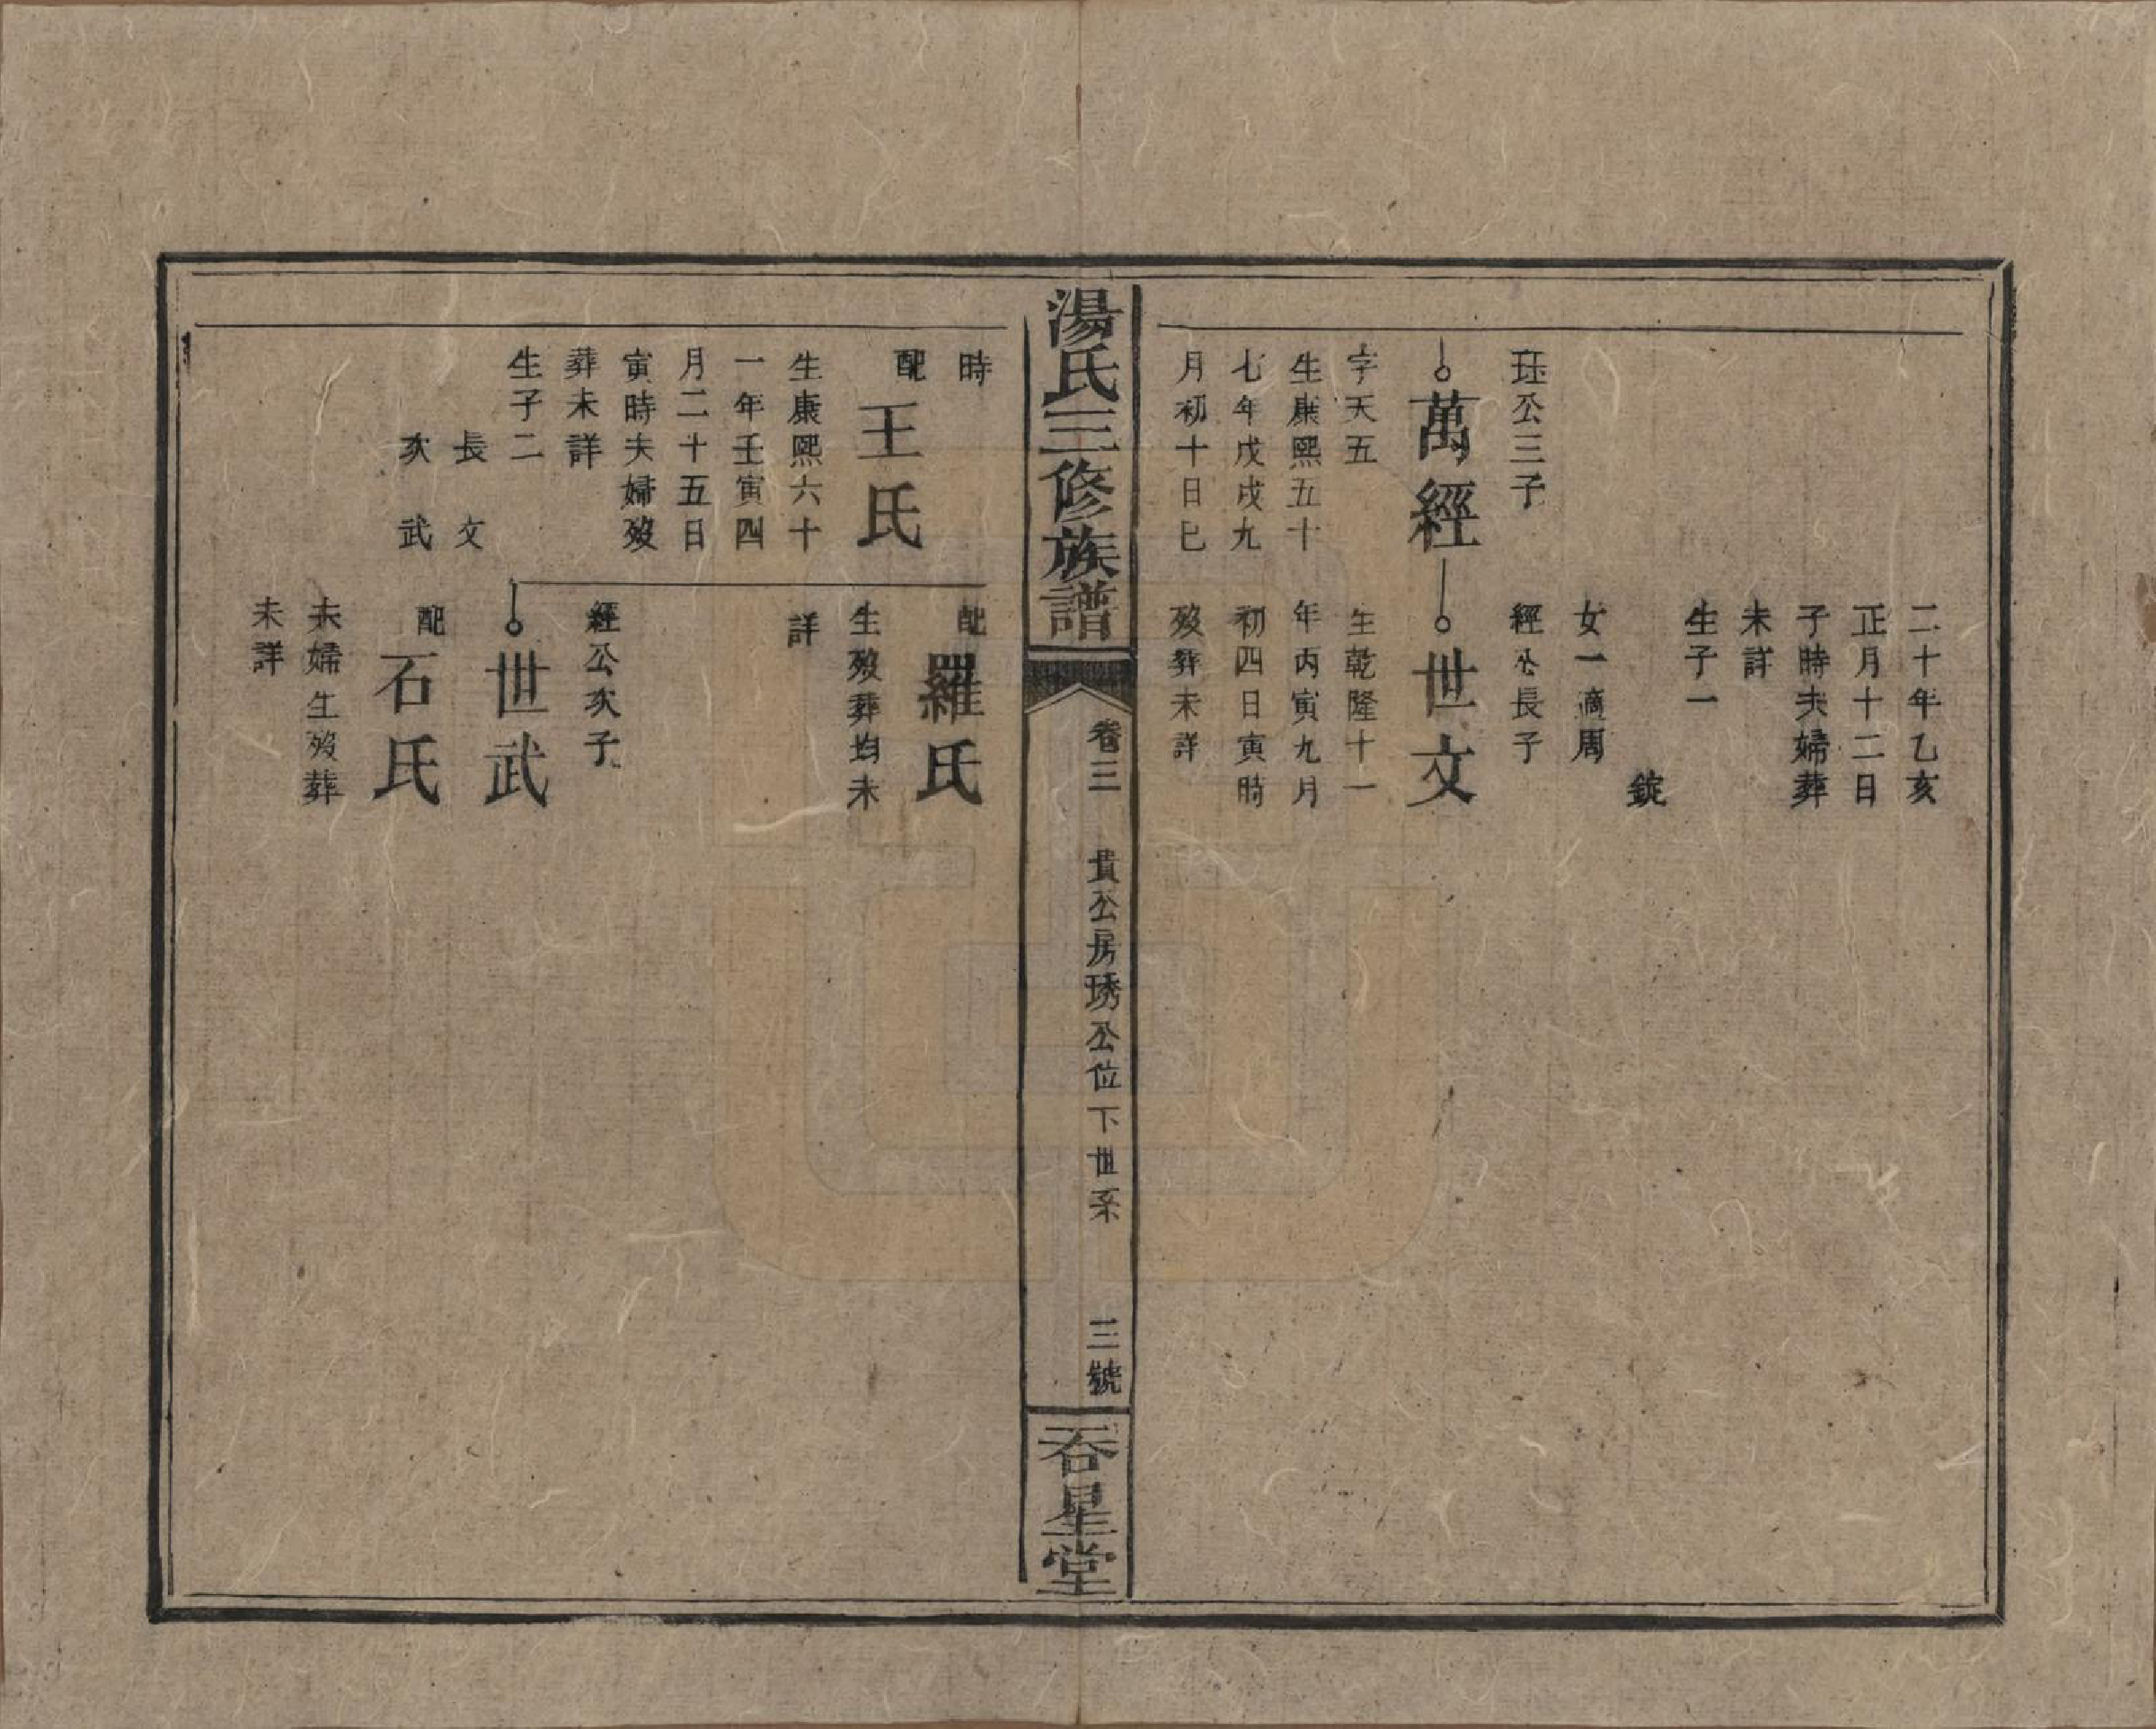 二十年乙亥
正月十二日
子時夫婦葬
未詳
生子一
錠
女一適周
珏公三子
萬經
字天五
生康熙五十
七年戊戌九
月初十日巳
經公長子
世文
生乾隆十一
年丙寅九月
初四日寅時
歿葬未詳
湯氏三修族譜
卷三
貴公房琇公位下世系
三號
吞星堂
時
配
王氏
生康熙六十
一年壬寅四
月二十五日
寅時夫婦歿
葬未詳
生子二
長文
次武
配
羅氏
生歿葬均未
詳
經公次子
世武
配
石氏
夫婦生歿葬
未詳